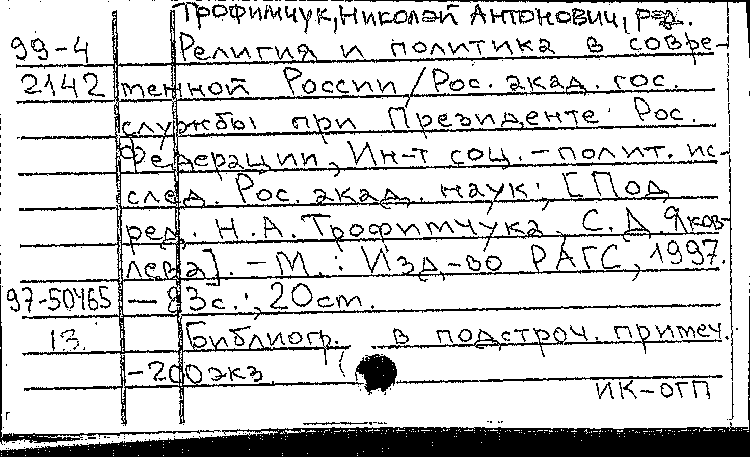 Трофимчук, Николай Антонович, ред.
99-4 Религия и политика в совре-
2142 менной России / Рос. акад. гос.
службы при Президенте Рос.
Федерации, Ин-т соц.-полит. ис-
след. Рос. акад. наук; [Под
ред. Н.А. Трофимчука, С.Д. Яков-
лева]. - М.: Изд-во РАГС, 1997.
97-50465 - 83с.; 20см.
13 Библиогр. в подстроч. примеч.
- 200 экз.
ИК-ОГП